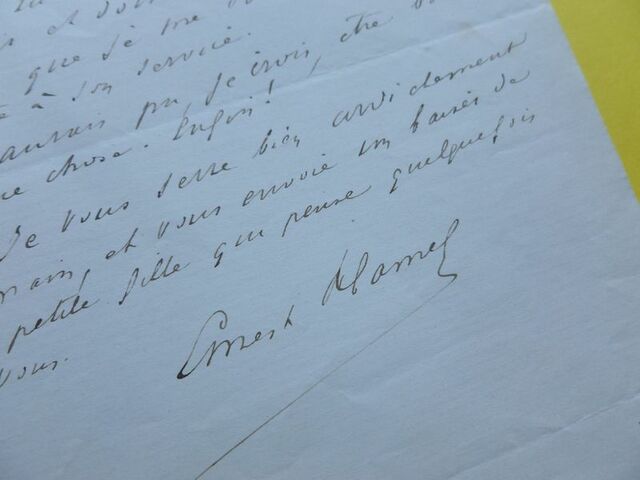 et
que je me
à son service.
aurais pu, je crois, être
chose. Enfin!
Je vous serre bien amicalement
main, et vous envoie un baiser de
petite fille qui pense quelquefois
vous.
Ernest Hamel